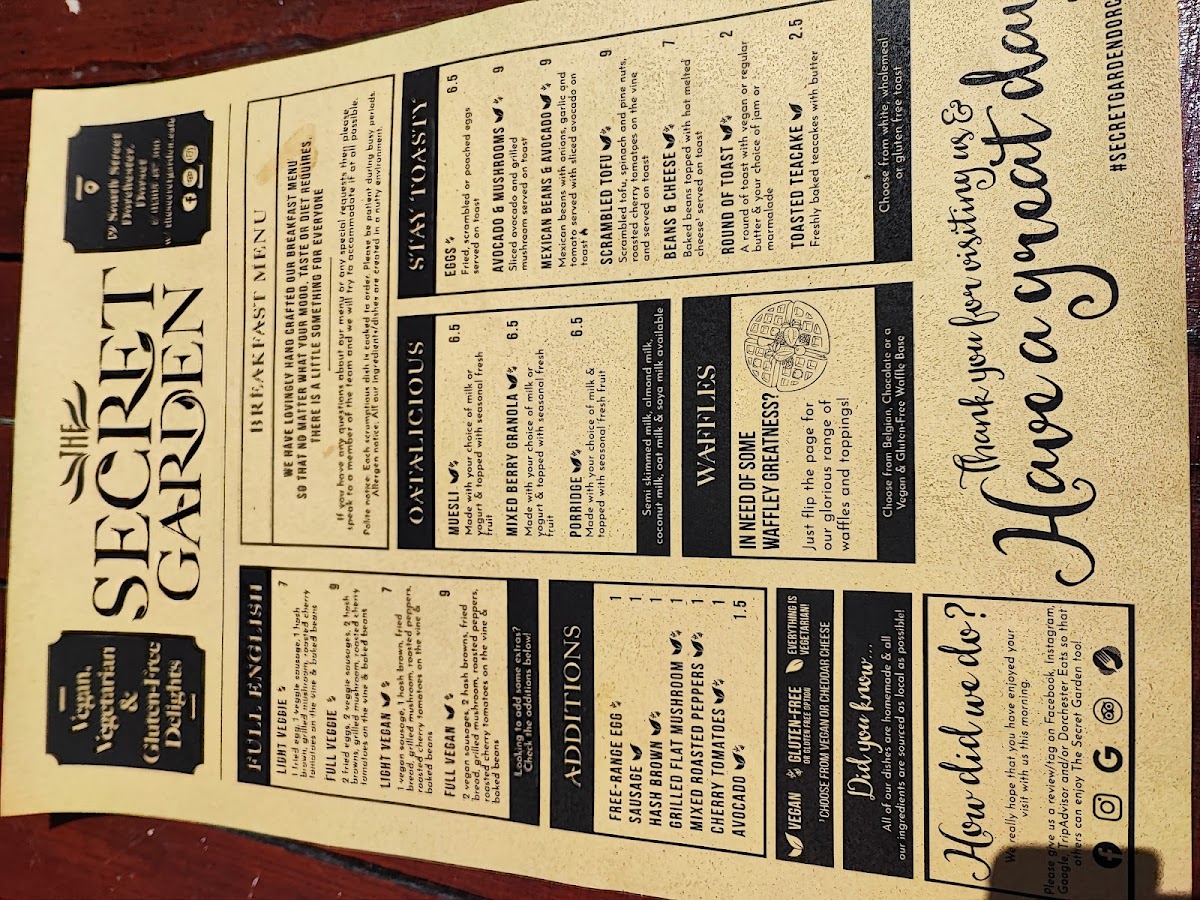 Vegan,
Vegetarian
&
Gluten-Free
Delights
THE
SECRET
GARDEN
19 South Street
Dorchester,
Dorset
w. thesecretgarden.cafe
FULL ENGLISH
LIGHT VEGGIE 7
1 fried egg, 1 veggie sausage, 1 hash
brown, grilled mushroom, roasted cherry
tomatoes on the vine & baked beans
FULL VEGGIE 9
2 fried eggs, 2 veggie sausages, 2 hash
browns, grilled mushroom, roasted cherry
tomatoes on the vine & baked beans
LIGHT VEGAN 7
1 vegan sausage, 1 hash brown, fried
bread, grilled mushroom, roasted peppers,
roasted cherry tomatoes on the vine &
baked beans
FULL VEGAN 9
2 vegan sausages, 2 hash browns, fried
bread, grilled mushroom, roasted peppers,
roasted cherry tomatoes on the vine &
baked beans
Looking to add some extras?
Check the additions below!
ADDITIONS
FREE-RANGE EGG 1
SAUSAGE 1
HASH BROWN 1
GRILLED FLAT MUSHROOM 1
MIXED ROASTED PEPPERS 1
CHERRY TOMATOES 1
AVOCADO 1.5
VEGAN GLUTEN-FREE
OR GLUTEN FREE OPTION
EVERYTHING IS
VEGETARIAN!
¹CHOOSE FROM VEGAN OR CHEDDAR CHEESE
Did you know...
All of our dishes are homemade & all
our ingredients are sourced as local as possible!
How did we do?
We really hope that you have enjoyed your
visit with us this morning.
Please give us a review/tag on Facebook, Instagram,
Google, TripAdvisor and/or Dorchester Eats so that
others can enjoy The Secret Garden too!
BREAKFAST MENU
WE HAVE LOVINGLY HAND CRAFTED OUR BREAKFAST MENU
SO THAT NO MATTER WHAT YOUR MOOD, TASTE OR DIET REQUIRES,
THERE IS A LITTLE SOMETHING FOR EVERYONE
If you have any questions about our menu or any special requests then please
speak to a member of the team and we will try to accommodate it if at all possible.
Polite notice. Each scrumptious dish is cooked to order. Please be patient during busy periods.
Allergen notice. All our ingredients/dishes are created in a nutty environment.
OATALICIOUS
MUESLI 6.5
Made with your choice of milk or
yogurt & topped with seasonal fresh
fruit
MIXED BERRY GRANOLA 6.5
Made with your choice of milk or
yogurt & topped with seasonal fresh
fruit
PORRIDGE 6.5
Made with your choice of milk &
topped with seasonal fresh fruit
Semi skimmed milk, almond milk,
coconut milk, oat milk & soya milk available
WAFFLES
IN NEED OF SOME
WAFFLEY GREATNESS?
Just flip the page for
our glorious range of
waffles and toppings!
Choose from Belgian, Chocolate or a
Vegan & Gluten-Free Waffle Base
STAY TOASTY
EGGS 6.5
Fried, scrambled or poached eggs
served on toast
AVOCADO & MUSHROOMS 9
Sliced avocado and grilled
mushroom served on toast
MEXICAN BEANS & AVOCADO 9
Mexican beans with onions, garlic and
tomato served with sliced avocado on
toast
SCRAMBLED TOFU 9
Scrambled tofu, spinach and pine nuts,
roasted cherry tomatoes on the vine
and served on toast
BEANS & CHEESE 7
Baked beans topped with hot melted
cheese¹ served on toast
ROUND OF TOAST 2
A round of toast with vegan or regular
butter & your choice of jam or
marmalade
TOASTED TEACAKE 2.5
Freshly baked teacakes with butter
Choose from white, wholemeal
or gluten free toast
Thank you for visiting us &
Have a great day
#SECRETGARDENDORC